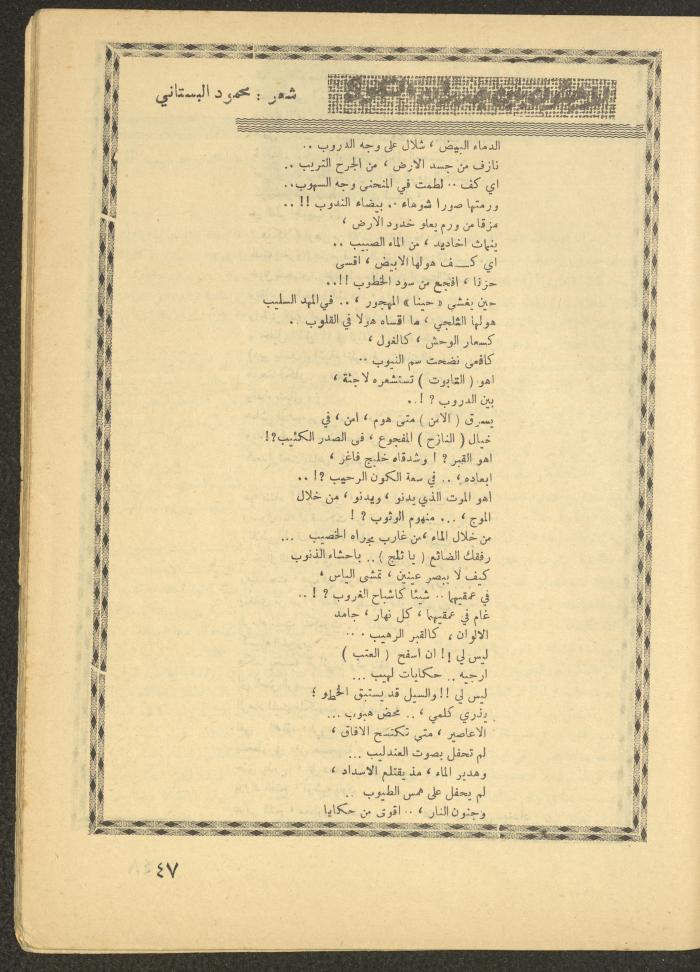 شعر : محمود البستاني
الدماء البيض ، شلال على وجه الدروب ..
نازف من جسد الارض ، من الجرح التريب ..
اي كف .. لطمت في المنحنى وجه السهوب..
ورمتها صورا شوهاء .. بيضاء الندوب !! ..
مزقا من ورم يعلو خدود الارض ،
ينهاث اخاديد ، من الماء الصبيب ..
اي كـــف هولها الابيض ، اقسى
حزنا ، افجع من سود الخطوب !!..
حين يغشي « حينا » المهجور ، .. في المهد السليب
هولها الثلجي ، ما اقساه هولا في القلوب .
كسعار الوحش ، كالغول ،
كافعى نضحت سم النيوب ..
اهو ( التابوت ) تستشعره لاجئة ،
بين الدروب ? ! ..
يسرق ( الامن ) متى هوم ، امن ، في
خيال ( النازح ) المفجوع ، في الصدر الكئيب?!
اهو القبر ? ! وشدقاه خليج فاغر ،
ابعاده ، .. في سعة الكون الرحيب ?! ..
اهو الموت الذي يدنو ، ويدنو ، من خلال
الموج ، ... منهوم الوثوب ? !
من خلال الماء ، من غارب مجراه الخصيب ...
رفقك الضائع ( يا ثلج ) .. باحشاء الذنوب
كيف لا يبصر عينين ، تمشى الياس ،
في عمقيهما .. شيئا كاشباح الغروب ? ! ..
غام في عمقيهما ، كل نهار ، جامد
الالوان ، كالقبر الرهيب . ..
ليس لي !! ان اسفح ( العتب )
ارجيه .. حكايات لهيب ...
ليس لي !! والسيل قد يستبق الخطو ؛
يذري كلمي ، .. محض هبوب ...
الاعاصير ، متى تكتسح الافاق ،
لم تحفل بصوت العندليب ...
وهدير الماء ، مذ يقتلم الاسداد ،
لم يحفل على همس الطيوب ..
وجنون النار ، .. اقوى من حكايا
٤٧